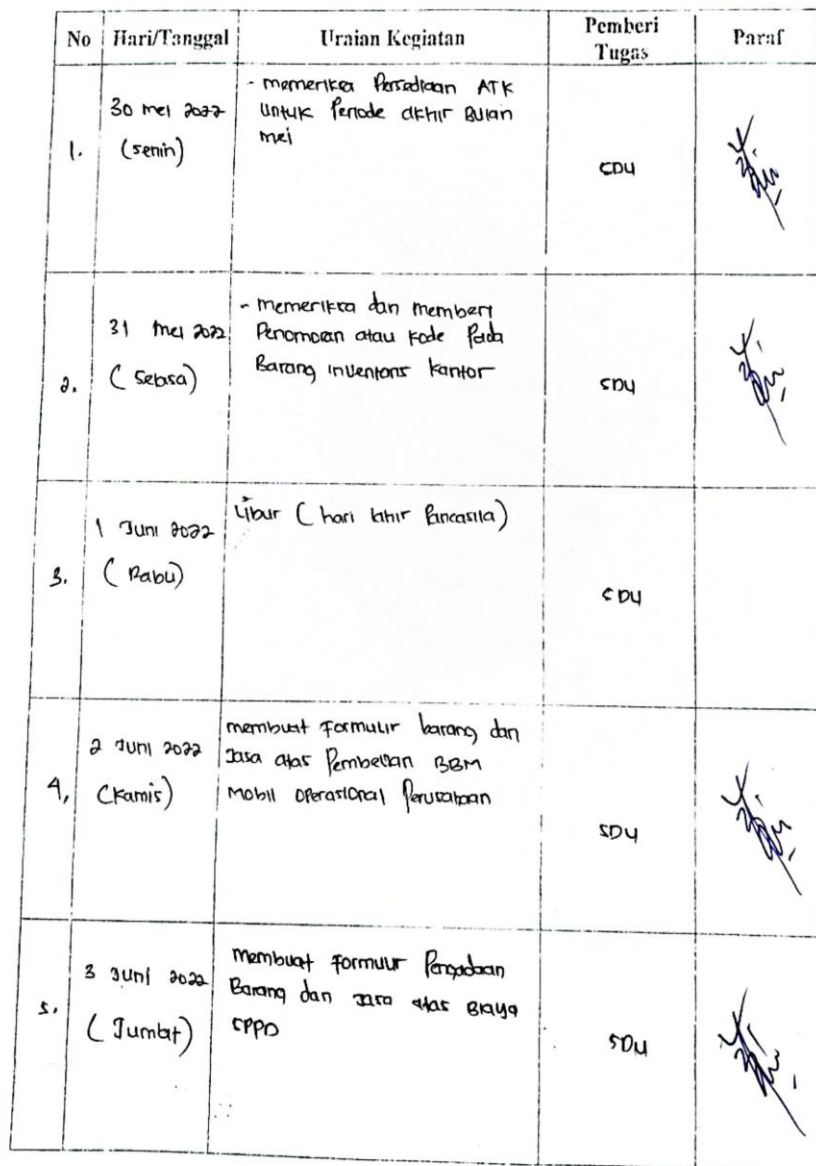 No Hari/Tanggal Uraian Kegiatan Pemberi Tugas Paraf
1. 30 mei 2022 (senin)
- memeriksa Persediaan ATK
untuk Periode akhir Bulan
mei
SDU
2. 31 mei 2022 (Selasa)
- memeriksa dan memberi
Penomoran atau kode Pada
Barang inventaris kantor
SDU
3. 1 Juni 2022 (Rabu)
Libur (hari lahir Pancasila)
SDU
4, 2 Juni 2022 (Kamis)
membuat formulir barang dan
Jasa atas Pembelian BBM
Mobil operasional Perusahaan
SDU
5. 3 Juni 2022 (Jumat)
membuat formulir Pengadaan
Barang dan Jasa atas Biaya
SPPD
SDU